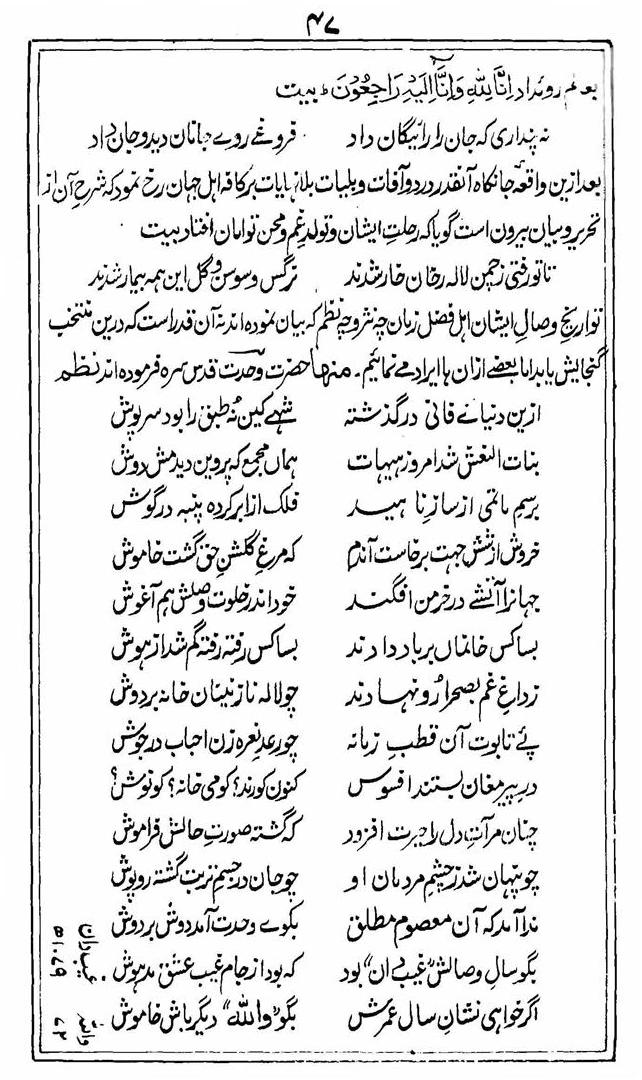 ۴۷
بعد لم رویداد اِنَّا لِلّٰهِ وَاِنَّا اِلَیْہِ رَاجِعُوْنَ ؕ بیت
نہ پنداری کہ جان را رائیگان داد فروغے روے جانان دید و جان داد
بعد ازین واقعہ جانکاه آنقدر درد و آفات و بلیات بلا نہایات بر کافہ اہل جہان رخ نمود کہ شرح آن از
تحریر و بیان بیرون است گویا کہ رحلتِ ایشان و تولد غم و محن توامان افتاد بیت
تا تو رفتی زچمن لالہ رخان خار شدند نرگس و سوسن و گل این ہمہ بیمار شدند
تواریخ وصالِ ایشان اہل فضل زبان چہ نثر و چہ نظم کہ بیان نمودہ اند نہ آن قدر است کہ درین منتخب
گنجایش یابد اما بعضے ازان ہا ایراد مے نمائیم۔ منہا حضرت وحدت قدس سرہ فرمودہ اند نظم
ازین دنیاے فانی درگذشتہ شہے کین نُہ طبق را بود سرپوش
بنات النعش شد امروز ہیہات ہمان مجمع کہ پروین دیدمش دوش
برسم ماتمی از ساز ناہید فلک از ابر کرده پنبہ در گوش
خروش از شش جہت برخاست آندم کہ مرغِ گلشنِ حق گشت خاموش
جہانرا آتشے در خرمن افگند خود اندر خلوت وصلش ہم آغوش
بسا کس خانماں برباد دادند بسا کس رفتہ رفتہ گم شد از ہوش
زداغِ غم بصحرا رُو نہادند چو لالہ نازنینان خانہ بردوش
پئے تابوت آن قطبِ زمانہ چو رعد نعرہ زن احباب در جوش
درِ پیرِ مغان بستند افسوس کنون کو رند؟ کو می خانہ؟ کو نوش؟
چنان مرآتِ دل را حیرت افزود کہ گشتہ صورتِ حالش فراموش
چو پنہان شد ز چشمِ مردمان او چو جان در جسم تربت گشتہ روپوش
ندا آمد کہ آن معصوم مطلق بکوے وحدت آمد دوش بردوش
بگو سالِ وصالش "غیب دان" بود کہ بود از جام غیب عشق مدہوش
اگر خواہی نشانِ سال عمرش بگو "واللہ" دیگر باش خاموش
غیب دان
۱۰۷۹ھ
واللہ
۷۲